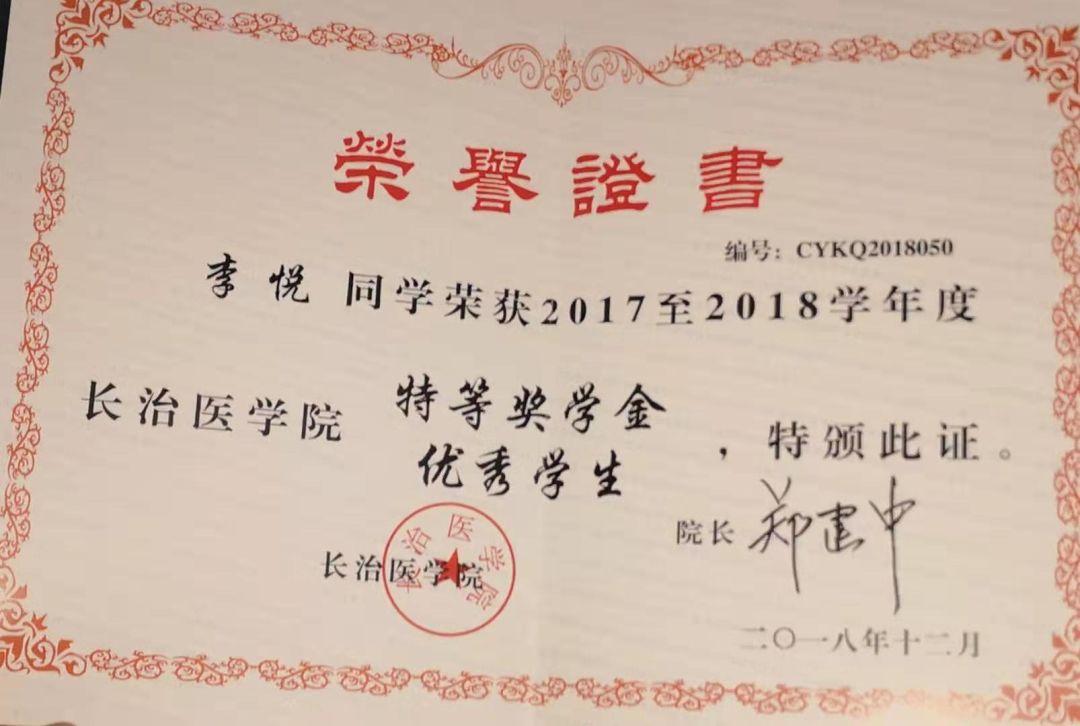 榮譽證書
编号：CYKQ2018050
李悦 同学荣获2017至2018学年度
长治医学院 特等奖学金
优秀学生 ，特颁此证。
院长 郑建中
长治医学院
长治医学院
二〇一八年十二月